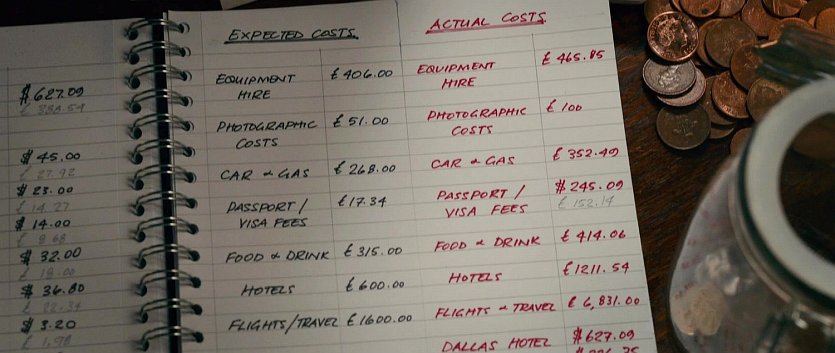 $627.09
£ 388.54
$45.00
£ 27.92
$23.00
£ 14.27
$14.00
£ 8.68
$32.00
$36.80
£ 22.34
$3.20
£ 1.98
EXPECTED COSTS.
EQUIPMENT £406.00
HIRE
PHOTOGRAPHIC £51.00
COSTS
CAR & GAS £268.00
PASSPORT / £17.34
VISA FEES
FOOD & DRINK £315.00
HOTELS £600.00
FLIGHTS/TRAVEL £1600.00
ACTUAL COSTS.
EQUIPMENT £465.85
HIRE
PHOTOGRAPHIC £100
COSTS
CAR & GAS £352.49
PASSPORT / $245.09
VISA FEES £152.14
FOOD & DRINK £414.06
HOTELS £1211.54
FLIGHTS & TRAVEL £6,831.00
DALLAS HOTEL $627.09